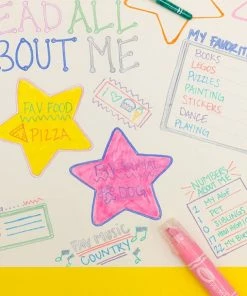 EAD ALL
BOUT ME
MY FAVORIT
BOOKS
LEGOS
PUZZLES
PAINTING
STICKERS
DANCE
PLAYING
FAV FOOD
PIZZA
DOG
NUMBERS
ABOUT ME
MY AGE
PET
SIBLINGS
FAV MUSIC
COUNTRY